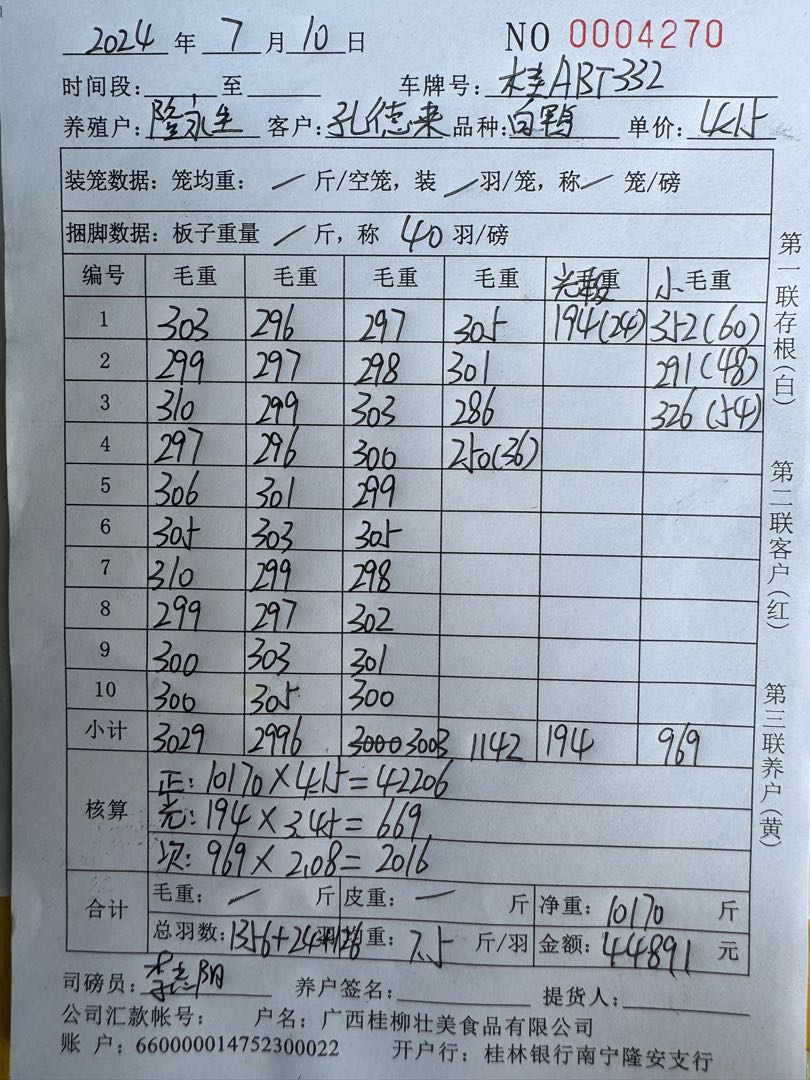 2024 年 7 月 10 日 NO 0004270
时间段: 至 车牌号: 桂ABT332
养殖户: 隆永生 客户: 孔德来 品种: 白鸭 单价: 4.15
装笼数据: 笼均重: / 斤/空笼, 装 / 羽/笼, 称 / 笼/磅
捆脚数据: 板子重量 / 斤, 称 40 羽/磅
编号 毛重 毛重 毛重 毛重 毛重 小毛重
1 303 296 297 305 194(24) 352(60)
2 299 297 298 301 291(48)
3 310 299 303 286 326(54)
4 297 296 300 250(36)
5 306 301 299
6 305 303 305
7 310 299 298
8 299 297 302
9 300 303 301
10 300 305 300
小计 3029 2996 3000 3003 1142 194 969
核算
正: 10170×4.15=42206
光: 194×3.45=669
次: 969×2.08=2016
合计
毛重: / 斤 皮重: 一 斤 净重: 10170 斤
总羽数: 1356+24+126 羽 均重: 7.5 斤/羽 金额: 44891 元
司磅员: 养户签名: 提货人:
公司汇款帐号: 户名: 广西桂柳壮美食品有限公司
账 户: 660000014752300022 开户行: 桂林银行南宁隆安支行
第一联存根(白)
第二联客户(红)
第三联养户(黄)